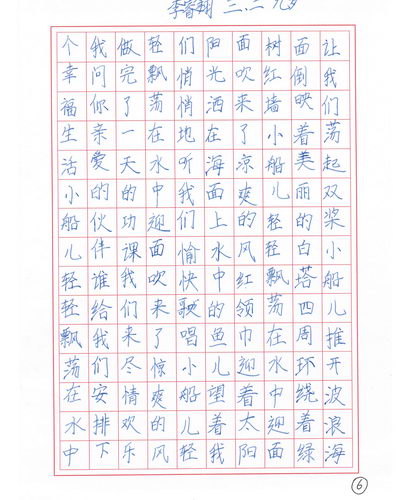 三.二
让我们荡起双桨小船儿推开波浪海
面倒映着美丽的白塔四周环绕着绿
树红墙小船儿轻轻飘荡在水中迎面
面吹来了凉爽的风红领巾迎着太阳
阳光洒在海面上水中的鱼儿望着我
们悄悄地听我们愉快歌唱小船儿轻
轻飘荡在水中迎面吹来了惊爽的风
做完了一天的功课我们来尽情欢乐
我问你亲爱的伙伴谁给我们安排下
个幸福生活小船儿轻轻飘荡在水中
6